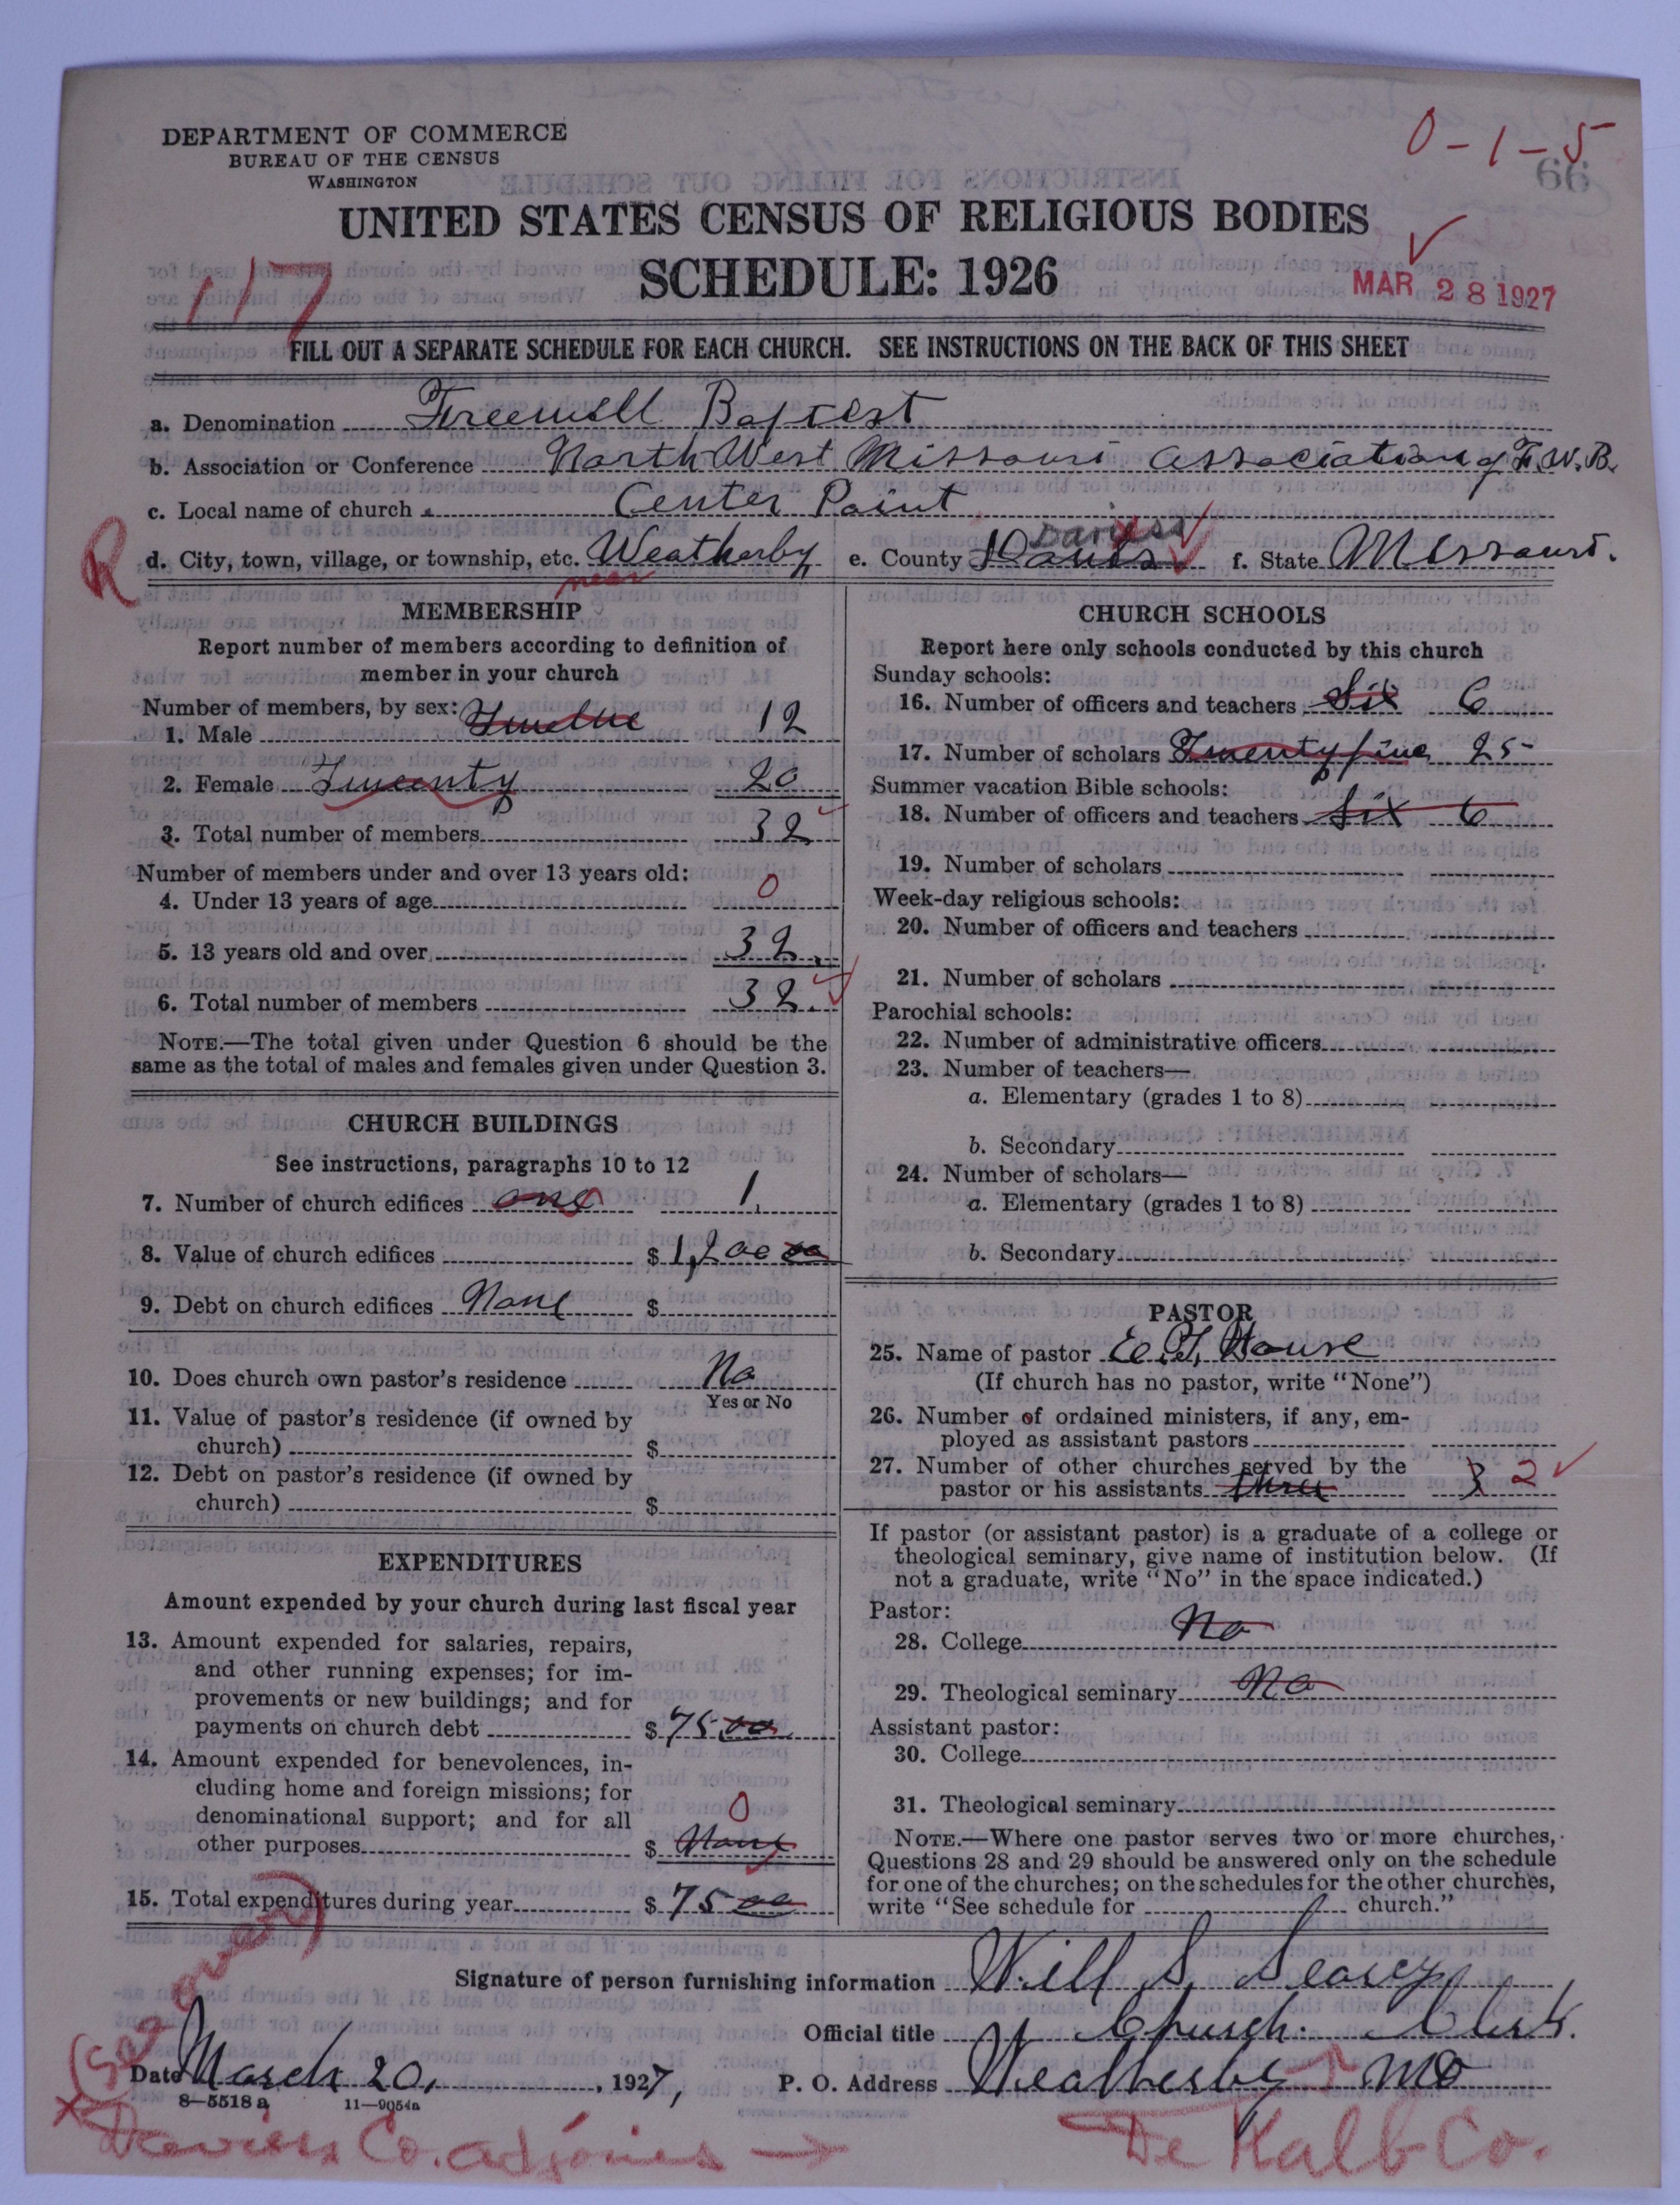 0-1-5
66
DEPARTMENT OF COMMERCE
BUREAU OF THE CENSUS
WASHINGTON
UNITED STATES CENSUS OF RELIGIOUS BODIES
SCHEDULE: 1926
117
MAR 28 1927
FILL OUT A SEPARATE SCHEDULE FOR EACH CHURCH. SEE INSTRUCTIONS ON THE BACK OF THIS SHEET
a. Denomination Freewill Baptist
b. Association or Conference North West Missouri Association of F.W.B.
c. Local name of church Center Point
R
d. City, town, village, or township, etc. Weatherby e. County Daviess f. State Missouri.
near
MEMBERSHIP
Report number of members according to definition of
member in your church
Number of members, by sex:
1. Male Twelve 12
2. Female Twenty 20
3. Total number of members 32
Number of members under and over 13 years old:
4. Under 13 years of age 0
5. 13 years old and over 32.
6. Total number of members 32.
NOTE.—The total given under Question 6 should be the
same as the total of males and females given under Question 3.
CHURCH BUILDINGS
See instructions, paragraphs 10 to 12
7. Number of church edifices one 1.
8. Value of church edifices $ 1,200 00
9. Debt on church edifices None $
10. Does church own pastor's residence No
Yes or No
11. Value of pastor's residence (if owned by
church) $
12. Debt on pastor's residence (if owned by
church) $
EXPENDITURES
Amount expended by your church during last fiscal year
13. Amount expended for salaries, repairs,
and other running expenses; for im-
provements or new buildings; and for
payments on church debt $ 75 00
14. Amount expended for benevolences, in-
cluding home and foreign missions; for
denominational support; and for all
other purposes $ None 0
15. Total expenditures during year $ 75 00
CHURCH SCHOOLS
Report here only schools conducted by this church
Sunday schools:
16. Number of officers and teachers Six 6
17. Number of scholars Twenty five 25
Summer vacation Bible schools:
18. Number of officers and teachers Six 6
19. Number of scholars
Week-day religious schools:
20. Number of officers and teachers
21. Number of scholars
Parochial schools:
22. Number of administrative officers
23. Number of teachers—
a. Elementary (grades 1 to 8)
b. Secondary
24. Number of scholars—
a. Elementary (grades 1 to 8)
b. Secondary
PASTOR
25. Name of pastor E. T. House
(If church has no pastor, write "None")
26. Number of ordained ministers, if any, em-
ployed as assistant pastors
27. Number of other churches served by the
pastor or his assistants three 3 2
If pastor (or assistant pastor) is a graduate of a college or
theological seminary, give name of institution below. (If
not a graduate, write "No" in the space indicated.)
Pastor:
28. College No
29. Theological seminary No
Assistant pastor:
30. College
31. Theological seminary
NOTE.—Where one pastor serves two or more churches,
Questions 28 and 29 should be answered only on the schedule
for one of the churches; on the schedules for the other churches,
write "See schedule for church."
Signature of person furnishing information Will S. Searcy
Official title Church Clerk.
(See over)
Date March 20, 1927, P. O. Address Weatherby Mo
8—5518 a 11—9054a
x Daviess Co. adjoines → De Kalb Co.